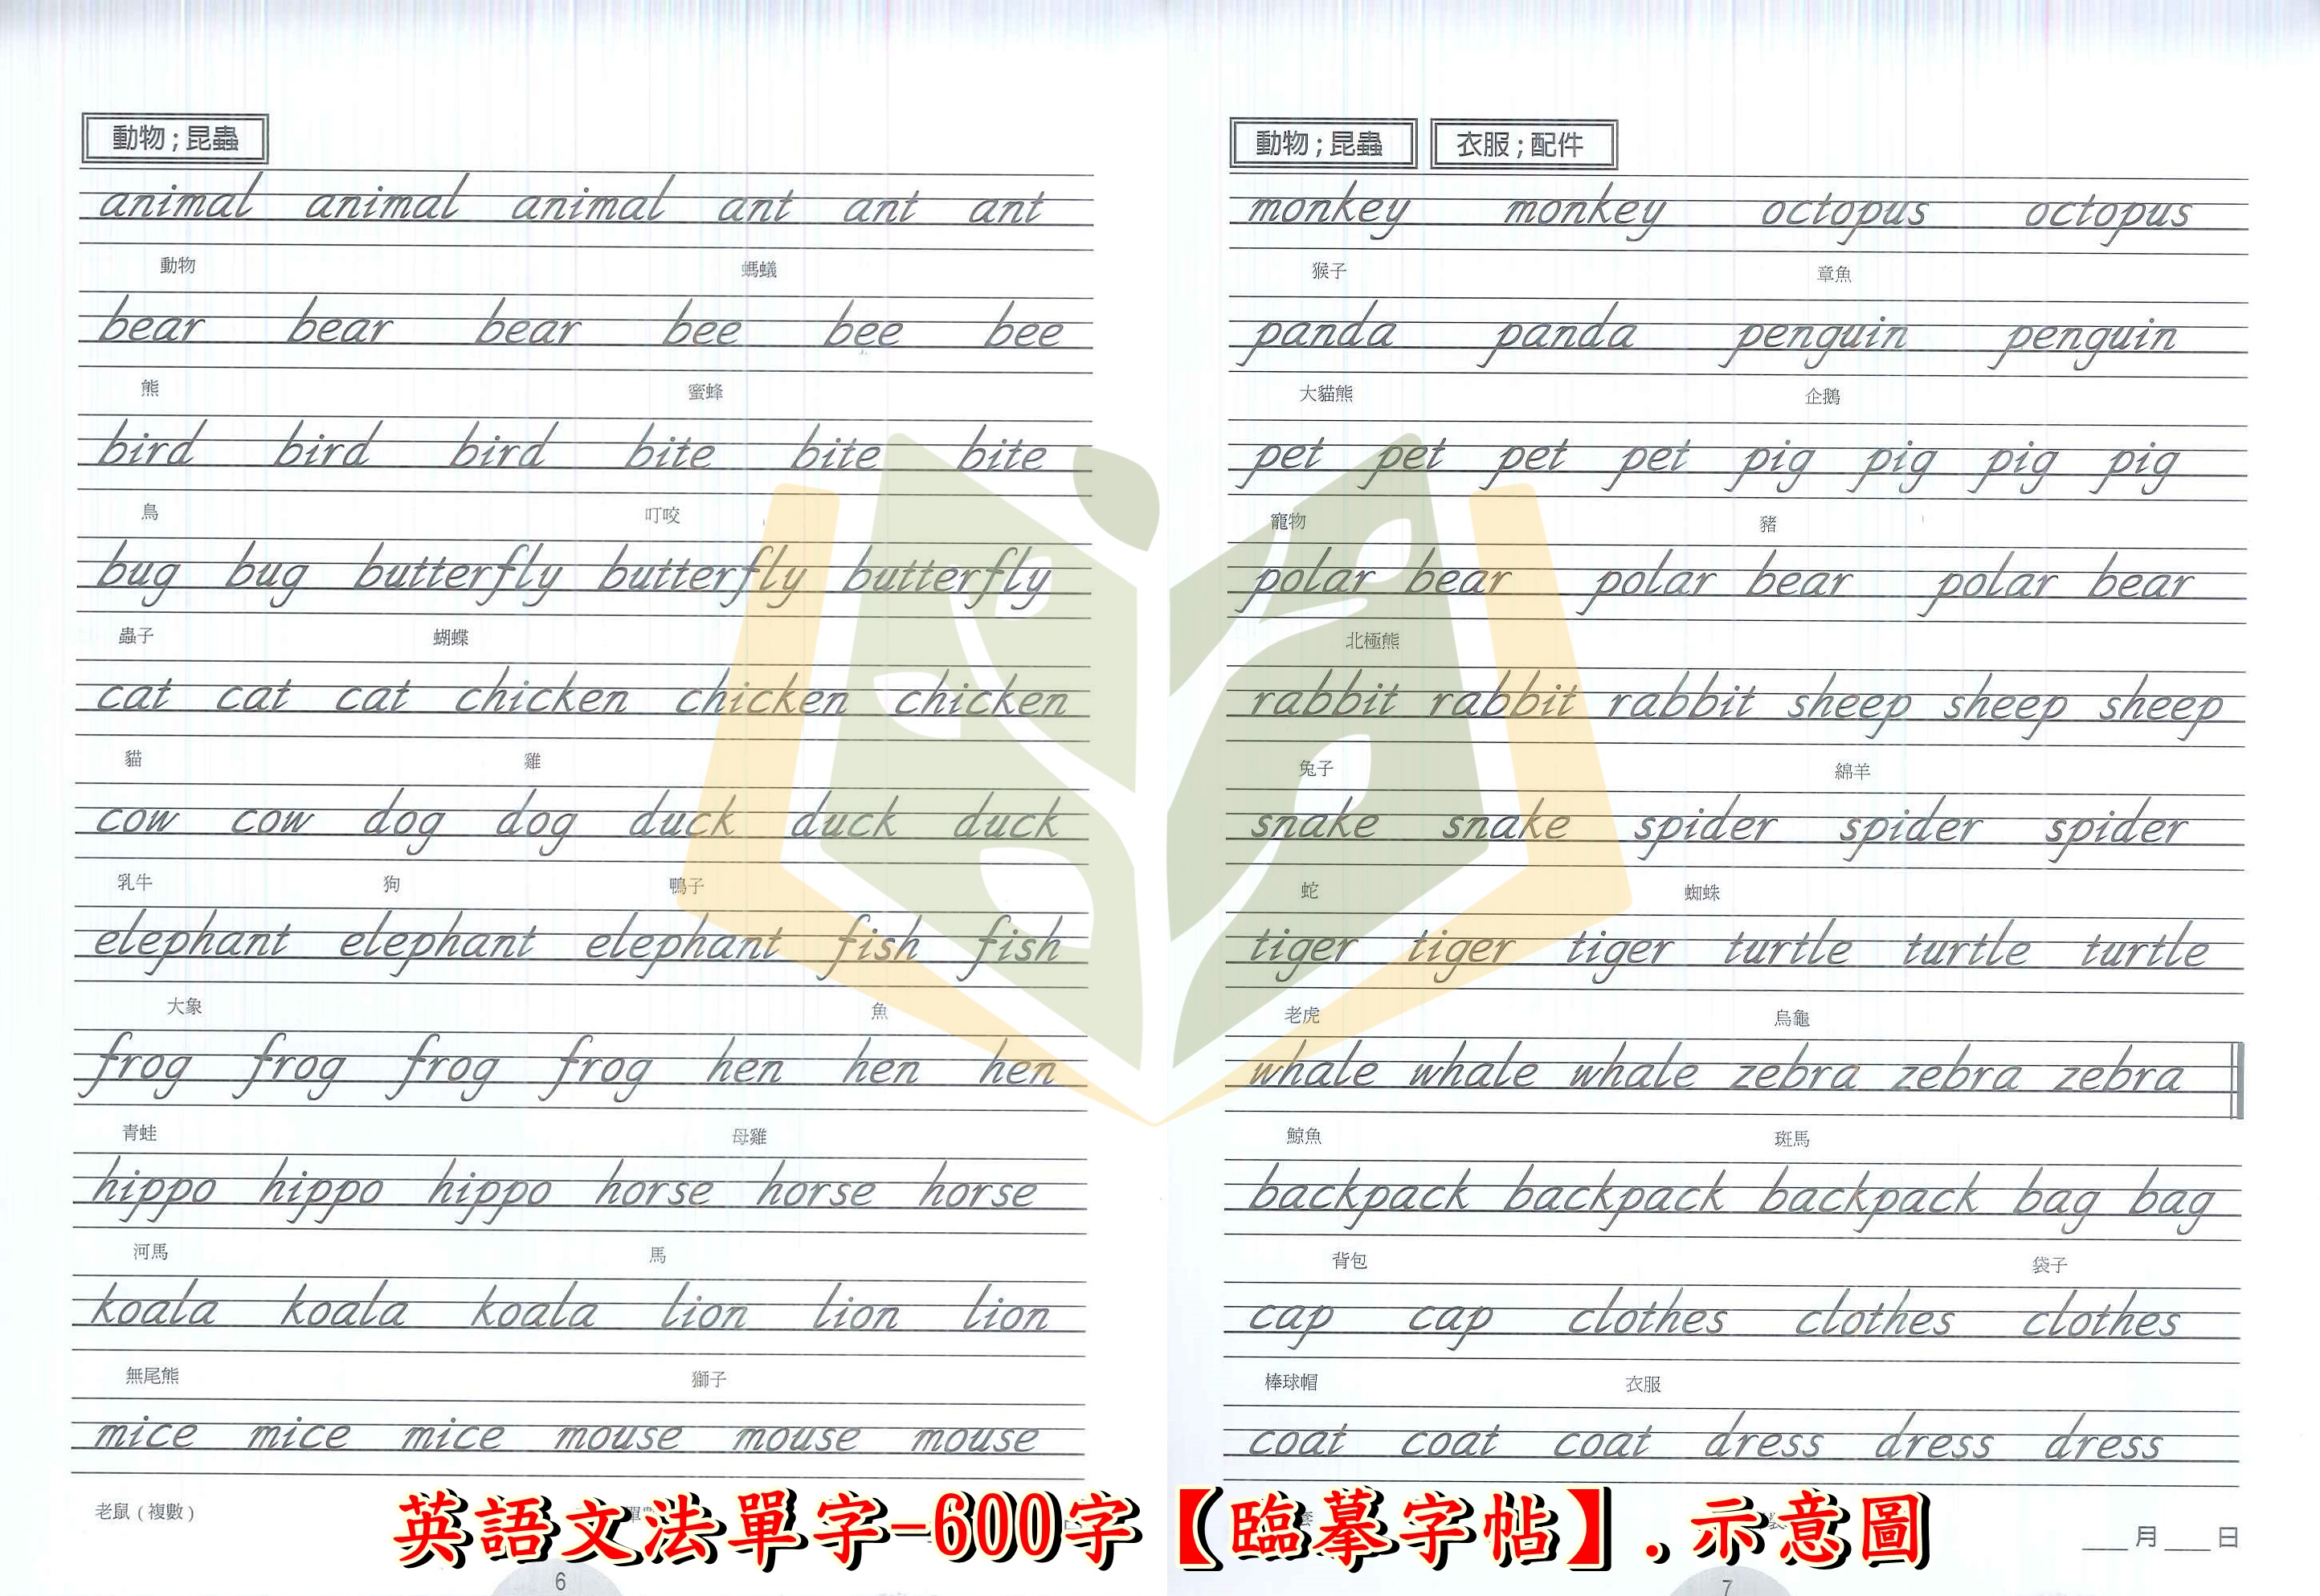 動物；昆蟲
animal animal animal ant ant ant
動物 螞蟻
bear bear bear bee bee bee
熊 蜜蜂
bird bird bird bite bite bite
鳥 叮咬
bug bug butterfly butterfly butterfly
蟲子 蝴蝶
cat cat cat chicken chicken chicken
貓 雞
cow cow dog dog duck duck duck
乳牛 狗 鴨子
elephant elephant elephant fish fish
大象 魚
frog frog frog frog hen hen hen
青蛙 母雞
hippo hippo hippo horse horse horse
河馬 馬
koala koala koala lion lion lion
無尾熊 獅子
mice mice mice mouse mouse mouse
老鼠（複數）
6
動物；昆蟲 衣服；配件
monkey monkey octopus octopus
猴子 章魚
panda panda penguin penguin
大貓熊 企鵝
pet pet pet pet pig pig pig pig
寵物 豬
polar bear polar bear polar bear
北極熊
rabbit rabbit rabbit sheep sheep sheep
兔子 綿羊
snake snake spider spider spider
蛇 蜘蛛
tiger tiger tiger turtle turtle turtle
老虎 烏龜
whale whale whale zebra zebra zebra
鯨魚 斑馬
backpack backpack backpack bag bag
背包 袋子
cap cap clothes clothes clothes
棒球帽 衣服
coat coat coat dress dress dress
___月___日
7
英語文法單字-600字【臨摹字帖】.示意圖